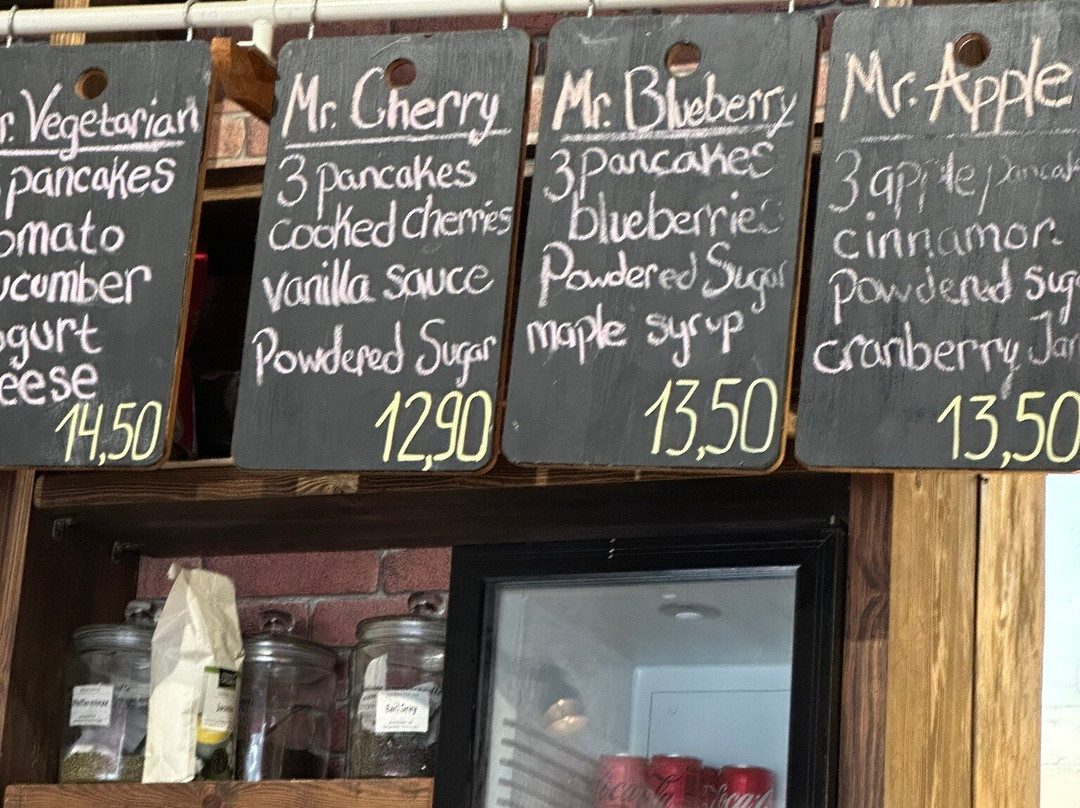 r. Vegetarian
pancakes
omato
ucumber
ogurt
eese
14,50
Mr. Cherry
3 pancakes
cooked cherries
vanilla sauce
Powdered Sugar
12,90
Mr. Blueberry
3 pancakes
blueberries
Powdered Sugar
maple syrup
13,50
Mr. Apple
3 apple pancak
cinnamon
powdered sug
cranberry Jam
13,50
Earl Grey
Coca-Cola